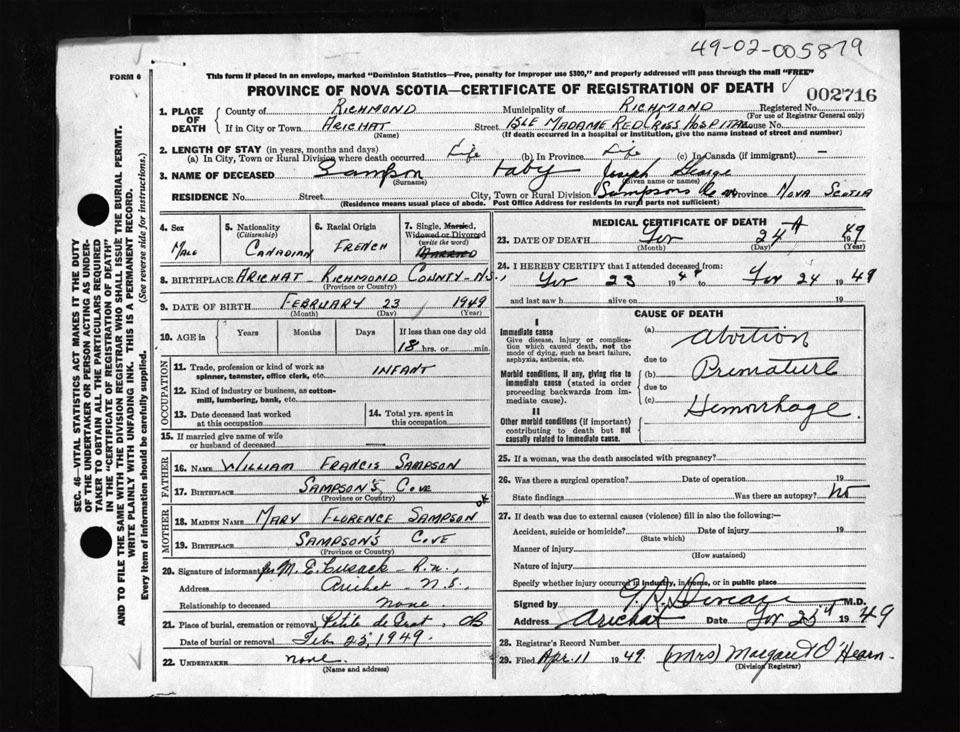 49-02-005879
FORM 6
This form if placed in an envelope, marked "Dominion Statistics—Free, penalty for improper use $300," and properly addressed will pass through the mail "FREE"
PROVINCE OF NOVA SCOTIA—CERTIFICATE OF REGISTRATION OF DEATH
002716
1. PLACE OF DEATH
County of RICHMOND Municipality of RICHMOND Registered No.
(For use of Registrar General only)
If in City or Town ARICHAT Street ISLE MADAME RED CROSS HOSPITAL House No.
(Name) (If death occurred in a hospital or institution, give the name instead of street and number)
2. LENGTH OF STAY (in years, months and days)
(a) In City, Town or Rural Division where death occurred Life (b) In Province Life (c) In Canada (if immigrant) —
3. NAME OF DECEASED Sampson Joseph George
(Surname) (Given name or names)
RESIDENCE No. Street City, Town or Rural Division Sampsons Cove Province NOVA SCOTIA
(Residence means usual place of abode. Post Office Address for residents in rural parts not sufficient)
4. Sex MALE
5. Nationality (Citizenship) CANADIAN
6. Racial Origin FRENCH
7. Single, Married, Widowed or Divorced (write the word) MARRIED
8. BIRTHPLACE ARICHAT - RICHMOND COUNTY - N.S.,
(Province or Country)
9. DATE OF BIRTH FEBRUARY 23 1949
(Month) (Day) (Year)
10. AGE in Years Months Days If less than one day old
18 hrs. or min.
OCCUPATION
11. Trade, profession or kind of work as spinner, teamster, office clerk, etc. INFANT
12. Kind of industry or business, as cotton-mill, lumbering, bank, etc.
13. Date deceased last worked at this occupation
14. Total yrs. spent in this occupation
15. If married give name of wife or husband of deceased —
FATHER
16. NAME WILLIAM FRANCIS SAMPSON
17. BIRTHPLACE SAMPSON'S COVE
(Province or Country)
MOTHER
18. MAIDEN NAME MARY FLORENCE SAMPSON OK
19. BIRTHPLACE SAMPSON'S COVE
(Province or Country)
20. Signature of informant M. E. Cusack - R.n.,
Address Arichat - N.S.,
Relationship to deceased none.
21. Place of burial, cremation or removal Petite de Grat, CB
Date of burial or removal Feb. 25, 1949.
22. UNDERTAKER none.
(Name and address)
MEDICAL CERTIFICATE OF DEATH
23. DATE OF DEATH 24 1949
(Month) (Day) (Year)
24. I HEREBY CERTIFY that I attended deceased from:
23 19 to 24 1949
and last saw h alive on 19
CAUSE OF DEATH
I
Immediate cause
Give disease, injury or complication which caused death, not the mode of dying, such as heart failure, asphyxia, asthenia, etc.
Morbid conditions, if any, giving rise to immediate cause (stated in order proceeding backwards from immediate cause).
II
Other morbid conditions (if important) contributing to death but not causally related to immediate cause.
(a) Abortion
due to
(b) Premature
due to
(c) Hemorrhage.
25. If a woman, was the death associated with pregnancy?
26. Was there a surgical operation? Date of operation 19
State findings Was there an autopsy? No
27. If death was due to external causes (violence) fill in also the following:—
Accident, suicide or homicide? Date of injury 19
(State which)
Manner of injury
(How sustained)
Nature of injury
Specify whether injury occurred in industry, in home, or in public place
Signed by M.D.
Address Arichat Date 1949
28. Registrar's Record Number
29. Filed Apr. 11 1949 (Mrs) Margaret O'Hearn.
(Division Registrar)
SEC. 46—VITAL STATISTICS ACT MAKES IT THE DUTY OF THE UNDERTAKER OR PERSON ACTING AS UNDERTAKER TO OBTAIN ALL THE PARTICULARS REQUIRED IN THE "CERTIFICATE OF REGISTRATION OF DEATH" AND TO FILE THE SAME WITH THE DIVISION REGISTRAR WHO SHALL ISSUE THE BURIAL PERMIT.
WRITE PLAINLY WITH UNFADING INK. THIS IS A PERMANENT RECORD.
Every item of information should be carefully supplied. (See reverse side for instructions.)